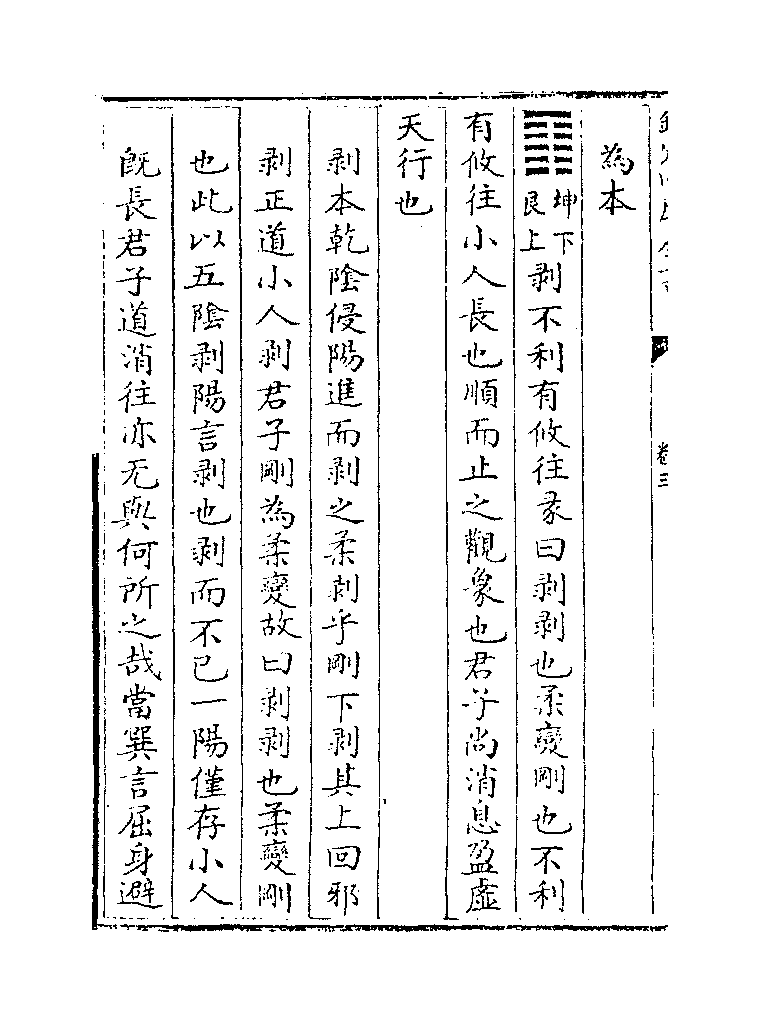 卷三
為本
䷖坤下艮上剥不利有攸往彖曰剥剥也柔變剛也不利
有攸往小人長也順而止之觀象也君子尚消息盈虛
天行也
剥本乾隂侵陽進而剥之柔剥乎剛下剥其上回邪
剥正道小人剥君子剛為柔變故曰剥剥也柔變剛
也此以五隂剥陽言剥也剥而不已一陽僅存小人
旣長君子道消往亦无與何所之哉當巽言屈身避